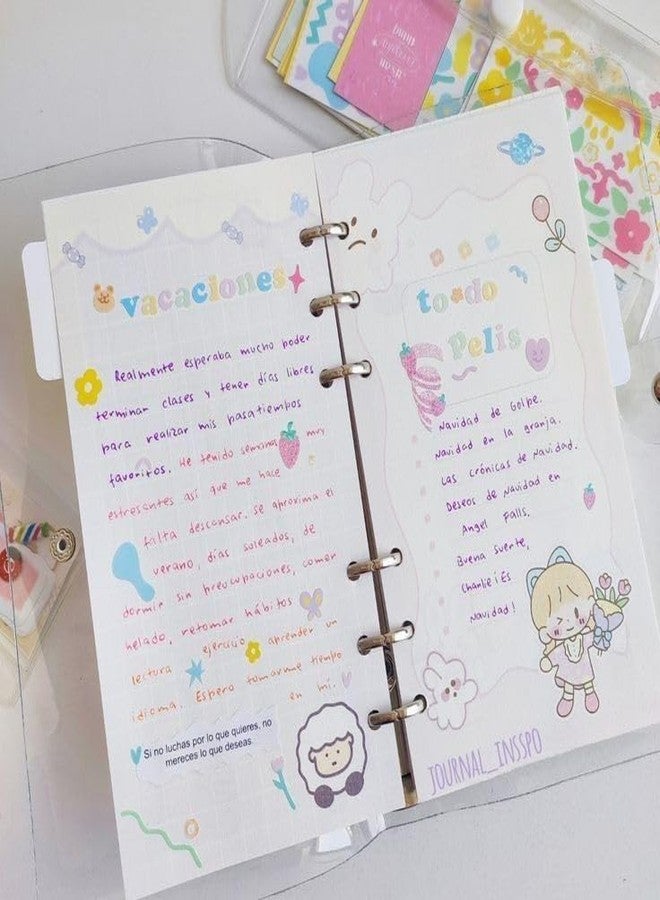 vacaciones
Realmente esperaba mucho poder
terminar clases y tener días libres
para realizar mis pasatiempos
favoritos. He tenido semanas muy
estresantes así que me hace
falta descansar. Se aproxima el
verano, días soleados, de
dormir sin preocupaciones, comer
helado, retomar hábitos
lectura ejercicio aprender un
idioma. Espero tomarme tiempo
en mí.
Si no luchas por lo que quieres, no
mereces lo que deseas.
to do
Pelis
Navidad de Golpe.
Navidad en la granja.
Las crónicas de Navidad.
Deseos de Navidad en
Angel Falls.
Buena suerte,
Charlie: Es
Navidad!
JOURNAL_INSSPO